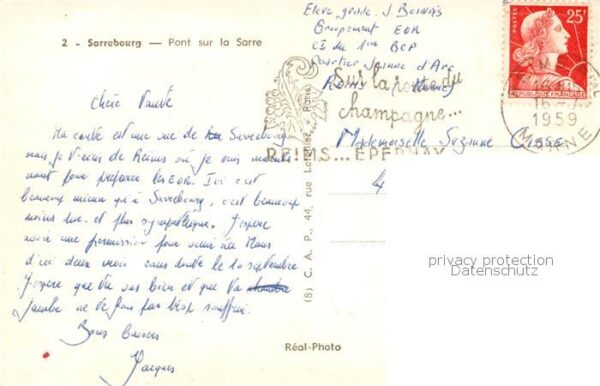 2 - Sarrebourg — Pont sur la Sarre
Eleve grade J
Groupement EOR
CI du 1er BCP
Quartier Jeanne d'Arc
Reims Marne
Chère
Ma carte est une vue de Sarrebourg
mais je t'écris de Reims où je suis
nant pour préparer les EOR. Ici c'est
beaucoup mieux qu'à Sarrebourg, c'est beaucoup
moins dur et plus sympathique. J'espère
avoir une permission pour venir au Mans
d'ici deux mois sans doute le 10 septembre
J'espère que tu vas bien et que ta
jambe ne te fais pas trop souffrir.
Bons baisers
Jacques
Sur la route du
champagne...
REIMS... EPERNAY
Mademoiselle Suzanne
POSTES
25F
REPUBLIQUE FRANCAISE
16-
1959
MARNE
(8) C. A. P., 44, rue Paris
Réal-Photo
privacy protection
Datenschutz